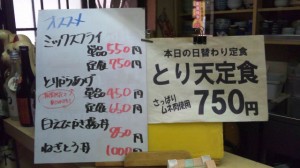 オススメ
ミックスフライ
単品 550円
定食 750円
とりからあげ
単品 450円
定食 650円
850円
ねぎとろ丼
1000円
本日の日替わり定食
とり天定食
さっぱり
ムネ肉使用
750円